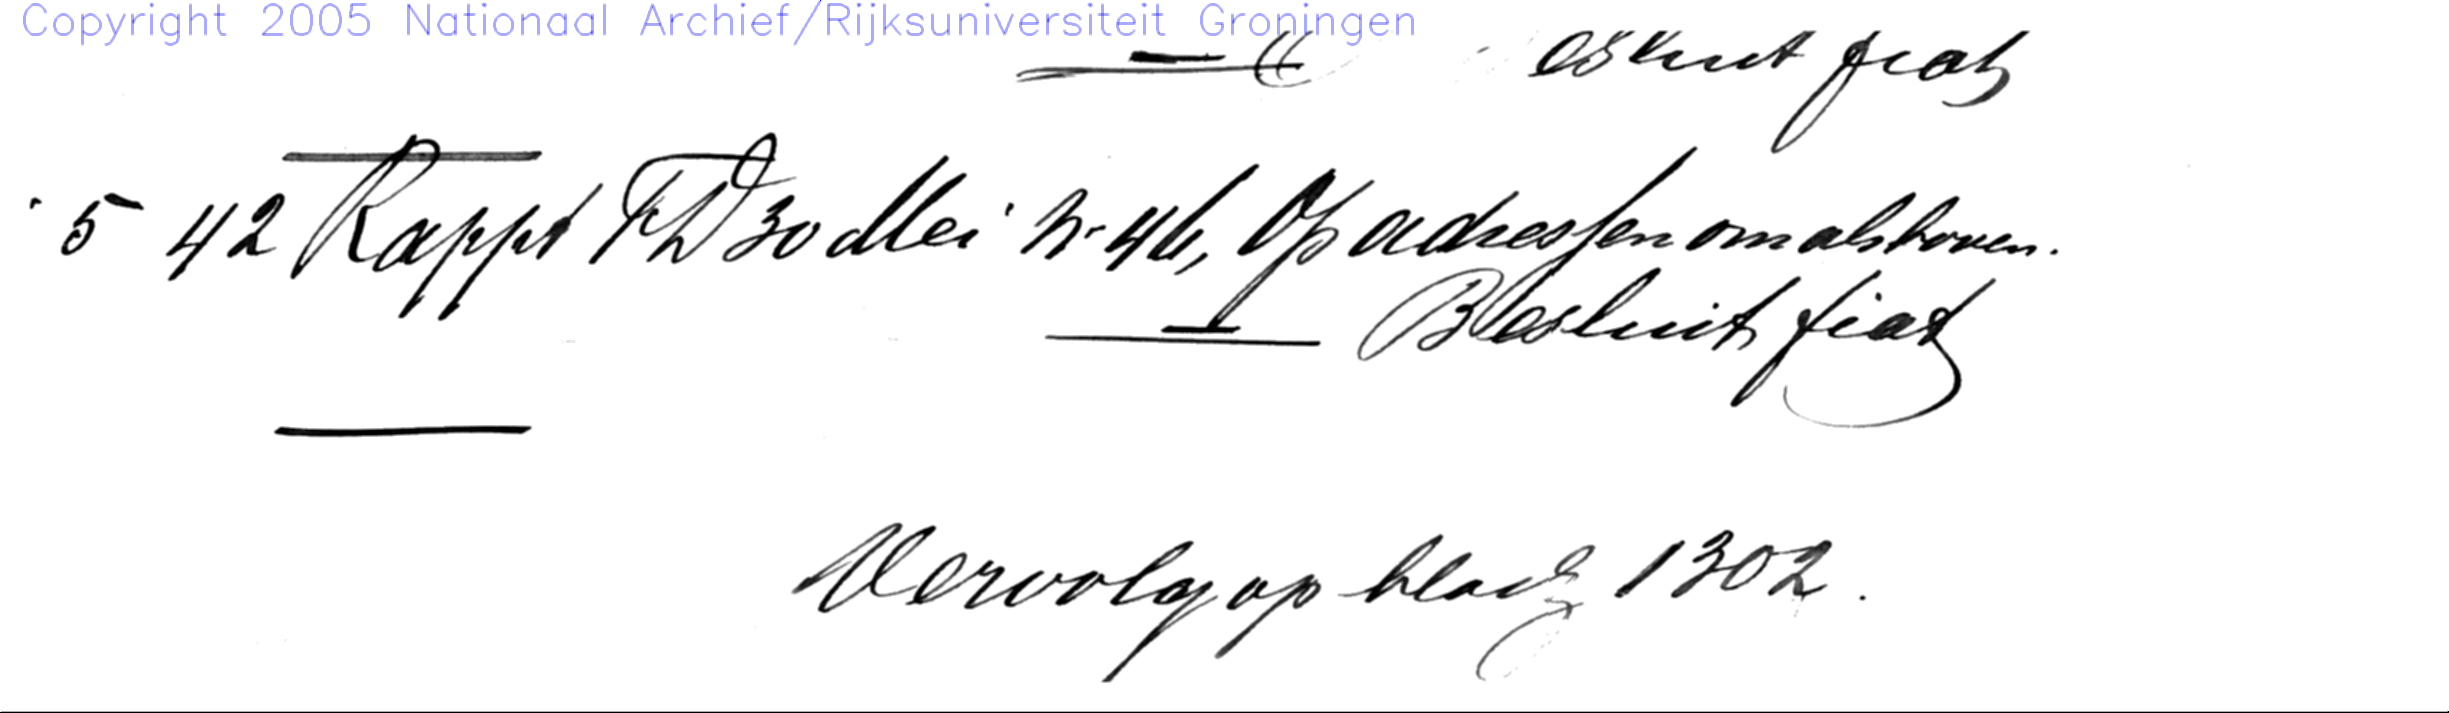 Copyright 2005 Nationaal Archief/Rijksuniversiteit Groningen
Besluit fiat
5 42 Rapp! FD 30 Mei N. 46, Op adressen om als boven.
Besluit fiat
Vervolg op bladz 1302.